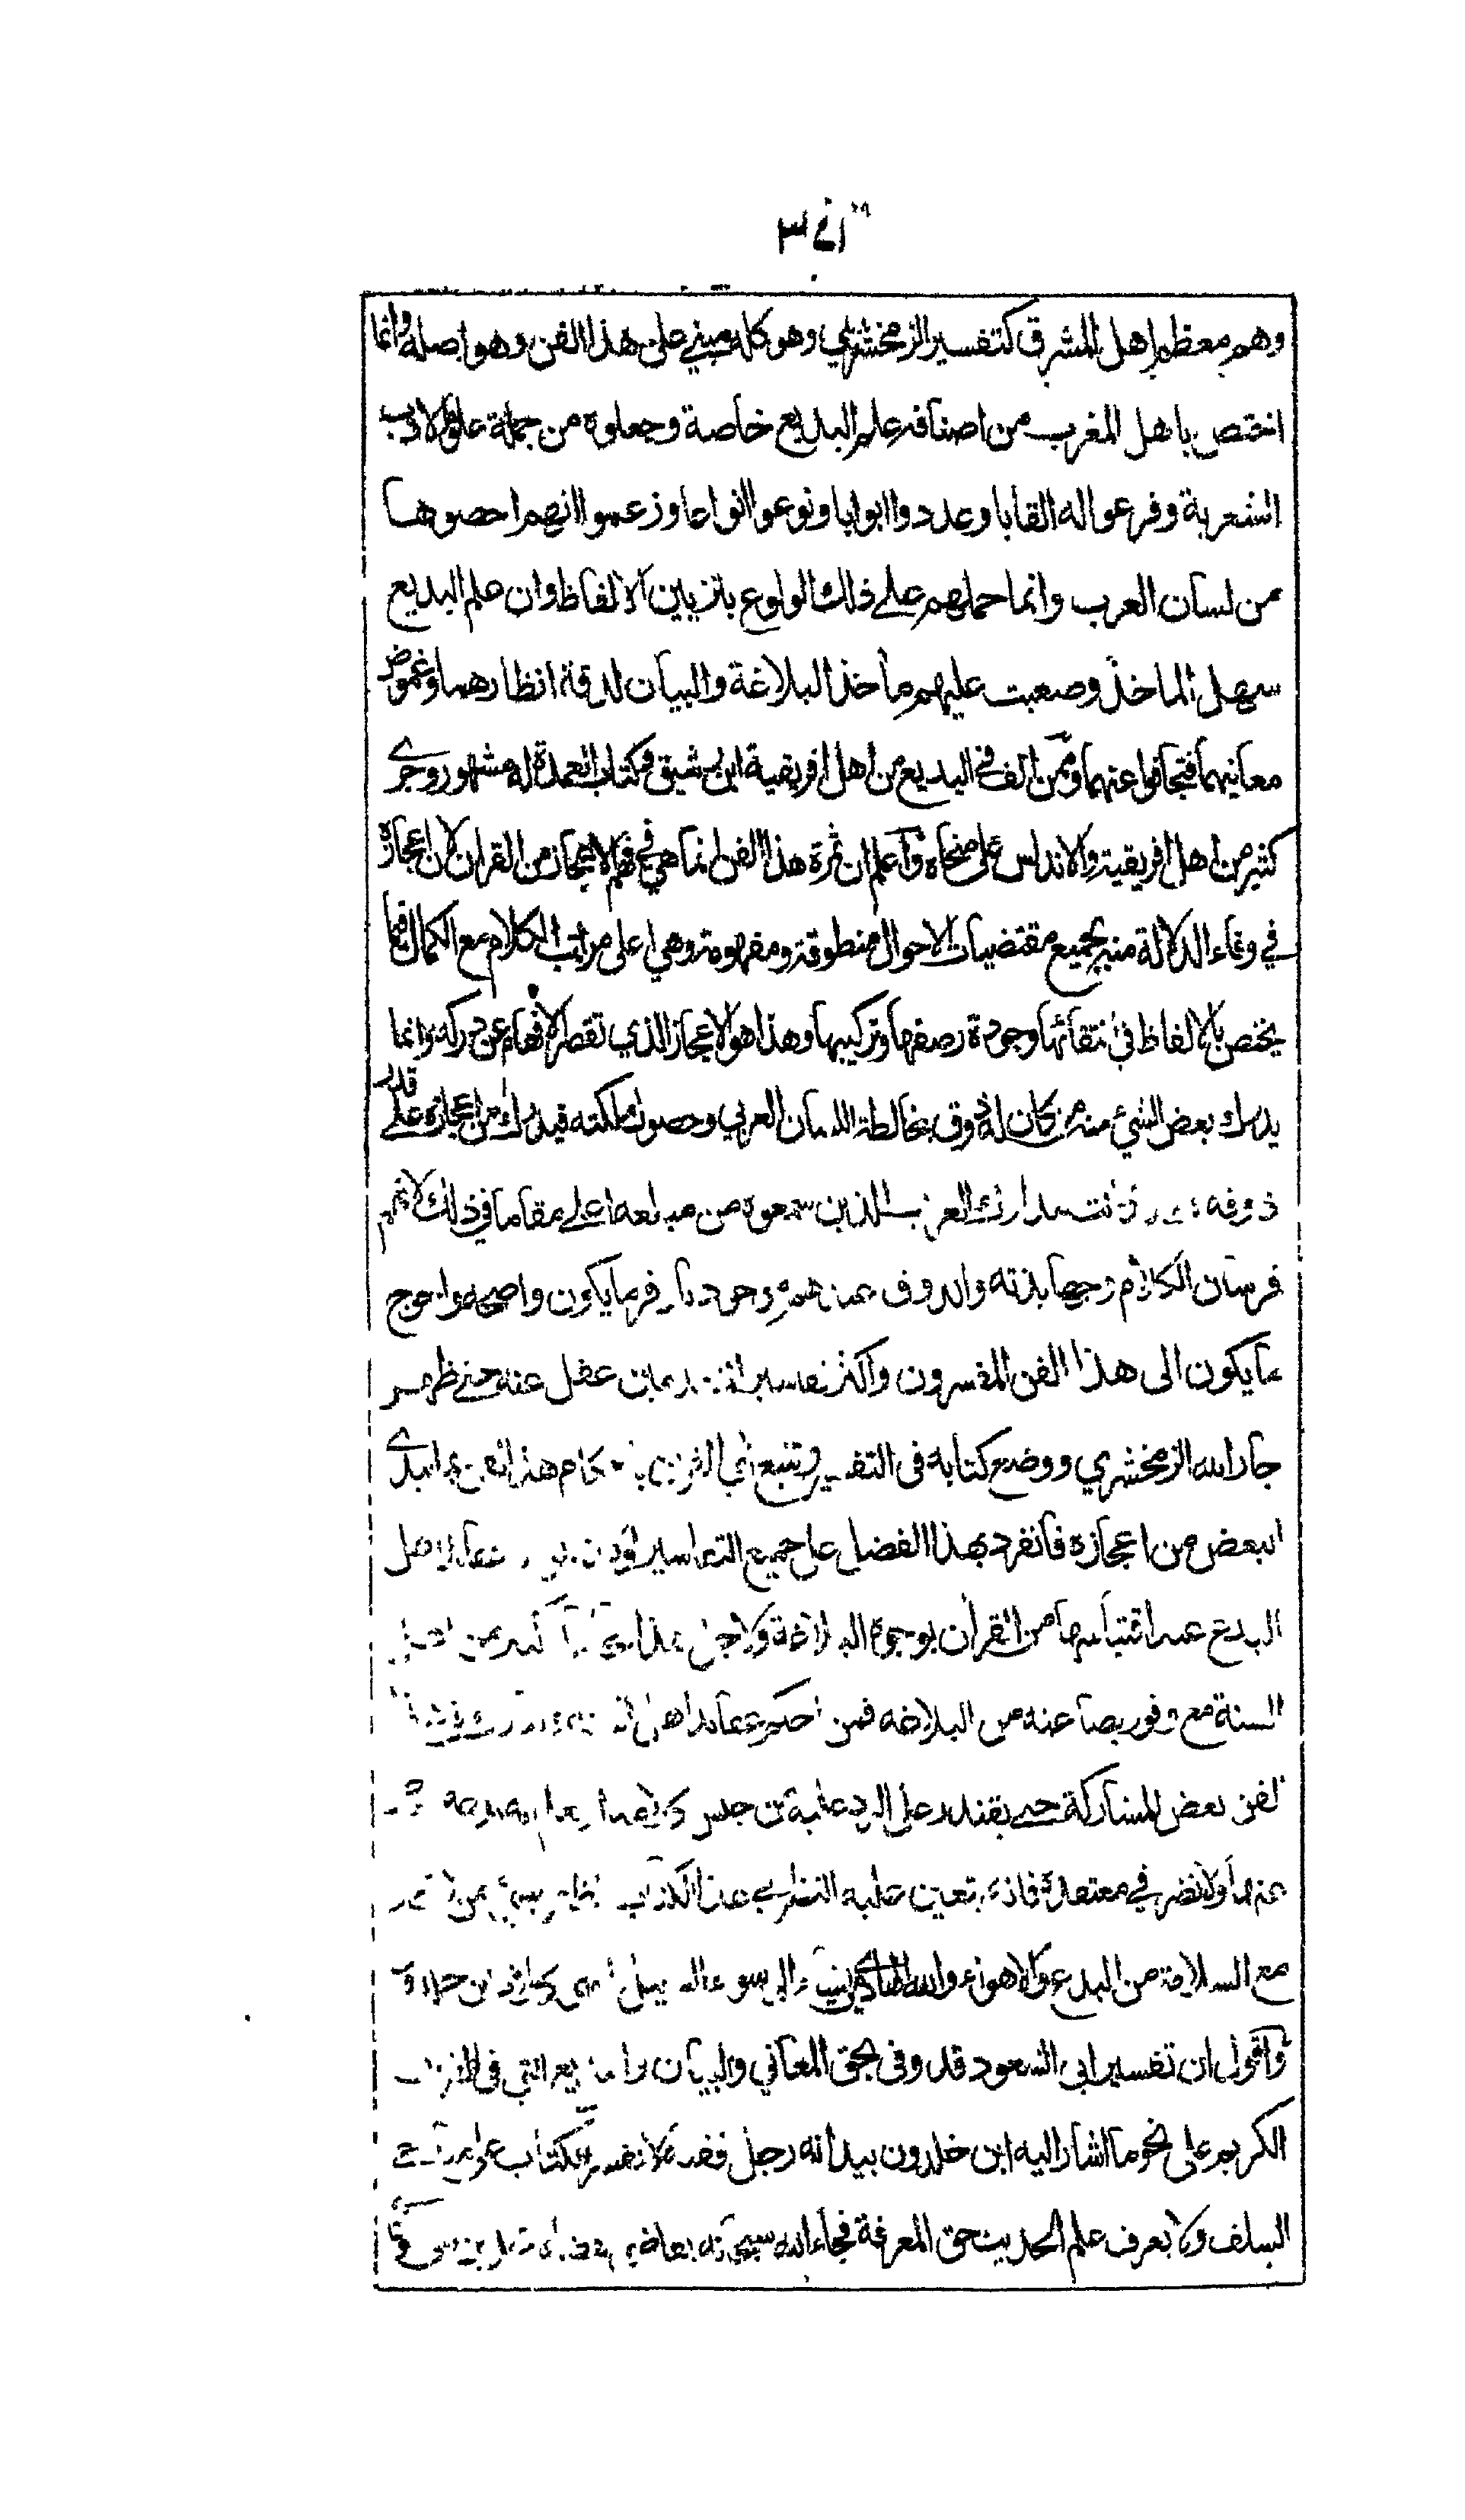 وهم معظم اهل المشرق كتفسير الزمخشري وهو كله مبني على هذا الفن وهو اصله وانما
اختص باهل المغرب من اصنافه علم البديع خاصة وجعلوه من جملة علوم الادب
الشعرية وفرعوا له القابا وعددوا ابوابا ونوعوا انواعا وزعموا انهم احصوها
من لسان العرب وانما حملهم على ذلك الولوع بتزيين الالفاظ وان علم البديع
سهل الماخذ وصعبت عليهم مآخذ البلاغة والبيان لدقة انظارهما وغموض
معانيهما فتجافوا عنهما وممن الف في البديع من اهل افريقية ابن رشيق وكتاب العمدة له مشهور وجرى
كثير من اهل افريقية والاندلس على منحاه واعلم ان ثمرة هذا الفن انما هي في فهم الاعجاز من القران لان اعجازه
في وفاء الدلالة منه بجميع مقتضيات الاحوال منطوقة ومفهومة وهي اعلى مراتب الكلام مع الكمال فيما
يختص بالالفاظ في انتقائها وجودة رصفها وتركيبها وهذا هو الاعجاز الذي تقصر الافهام عن دركه وانما
يدرك بعض الشيء منه من كان له ذوق بمخالطة اللسان العربي وحصول ملكته فيدرك من اعجازه على قدر
ذوقه مدارك العرب الذين سمعوه من مبلغه اعلى مقاما في ذلك لانهم
فرسان الكلام وجهابذته والذوق عندهم موجود باوفر ما يكون واصحه واحوج
ما يكون الى هذا الفن المفسرون واكثر تفاسير غفل عنه حتى ظهر
جار الله الزمخشري ووضع كتابه في التفسير وتتبع آي القرآن باحكام هذا الفن بما يبدى
البعض من اعجازه فانفرد بهذا الفضل على جميع التفاسير لولا انه يؤيد عقائد اهل
البدع عند اقتباسها من القرآن بوجوه البلاغة ولاجل هذا كثير من اهل
السنة مع وفور بضاعته من البلاغة فمن احكم عقائد اهل السنة
الفن بعض المشاركة حتى يقتدر على الرد عليه من جنس كلامه او يعلم انه بدعة
عنها ولا تضر في معتقده فانه يتعين عليه النظر في هذا الكتاب للظفر بشيء من الاعجاز
مع السلامة من البدع والاهواء والله الهادي من يشاء الى سواء السبيل انتهى كلام ابن خلدون
واقول ان تفسير ابي السعود قد وفى بحق المعاني والبيان والبديع التي في القران
الكريم على نحو ما اشار اليه ابن خلدون بيد انه رجل فقيه لا يفسر الكتاب على
السلف ولا يعرف علم الحديث حق المعرفة فجاء الله سبحانه